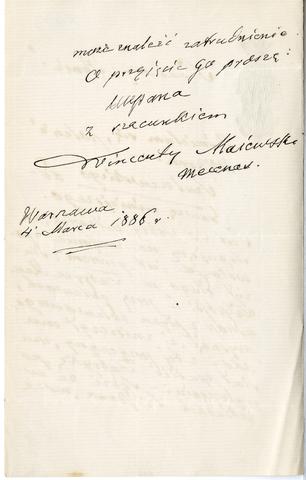 może znaleźć zatrudnienie.
O przyjęcie go proszę:
WPana
z szacunkiem
Wincenty Majewski
mecenas.
Warszawa
4 Marca 1886 r.